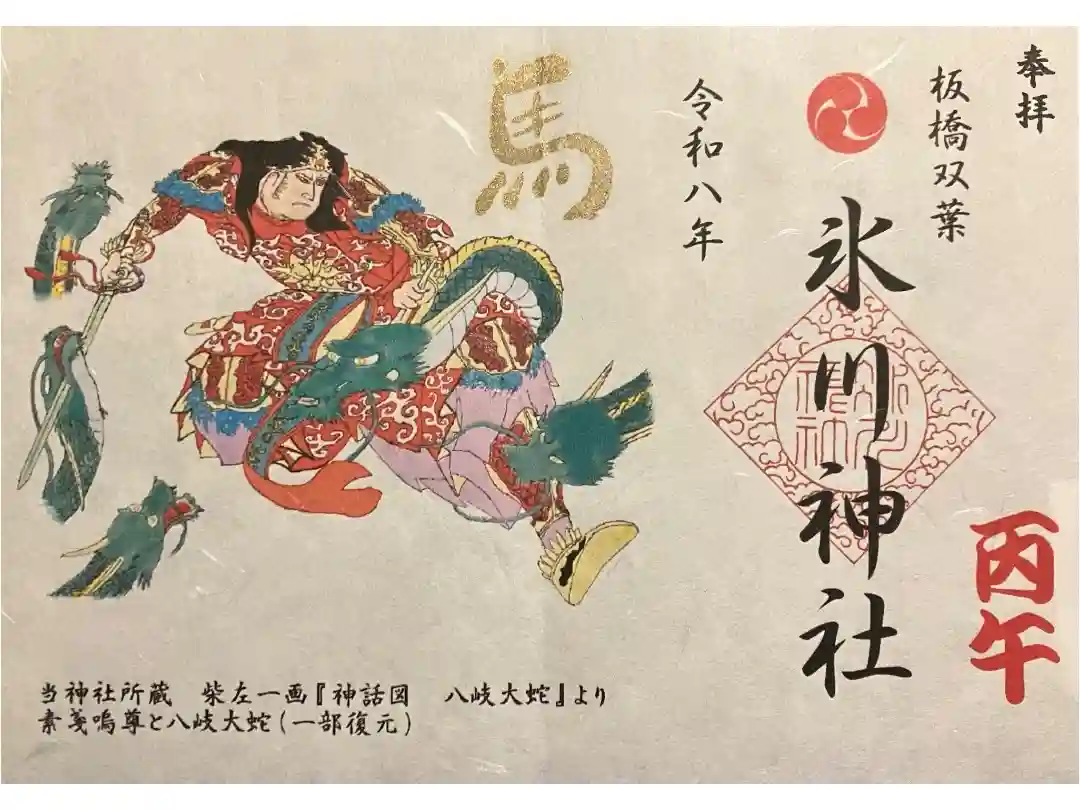 奉拝
板橋双葉
氷川神社
丙午
令和八年
馬
当神社所蔵　柴左一画『神話図　八岐大蛇』より
素戔嗚尊と八岐大蛇(一部復元)